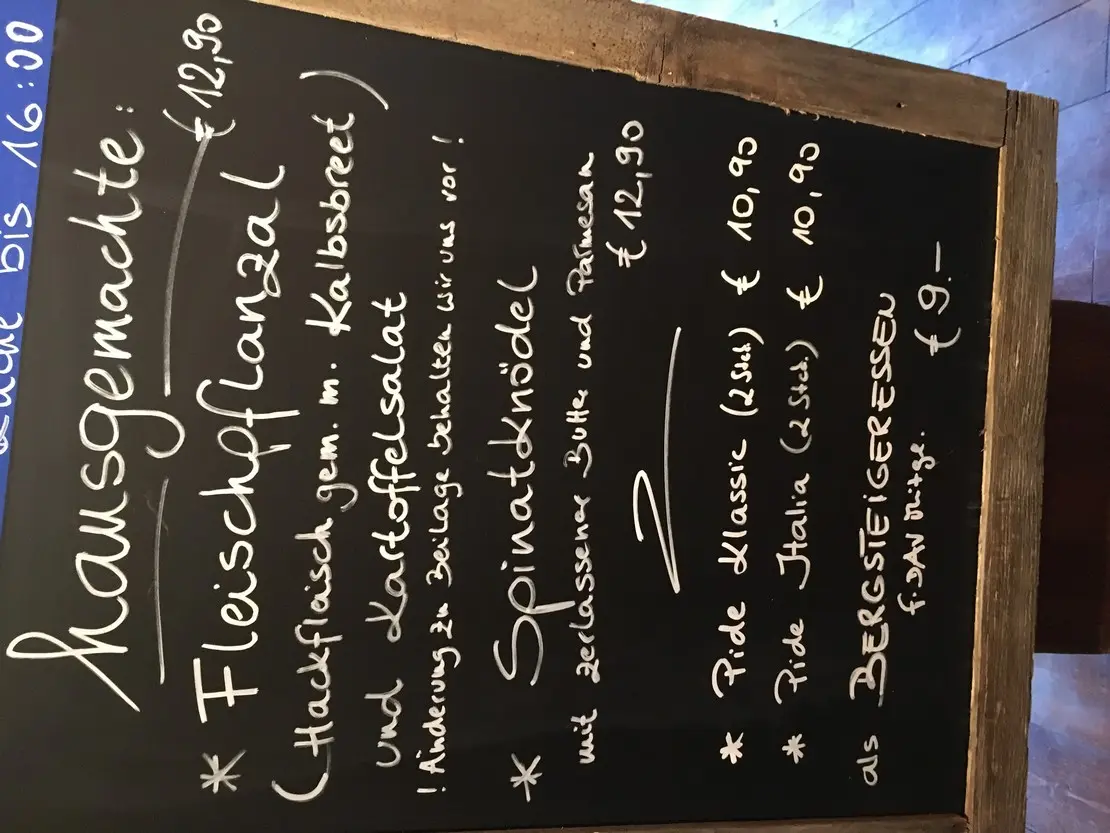 Küche bis 16:00
hausgemachte:
* Fleischpflanzal € 12,90
(Hackfleisch gem. m. Kalbsbreet)
und Kartoffelsalat
! Änderung zu Beilage behalten wir uns vor!
* Spinatknödel
mit zerlassener Butter und Parmesan
€ 12,90
* Pide Klassic (2 Stch.) € 10,90
* Pide Italia (2 Stch.) € 10,90
als BERGSTEIGERESSEN
f. DAV Mitge. € 9.-